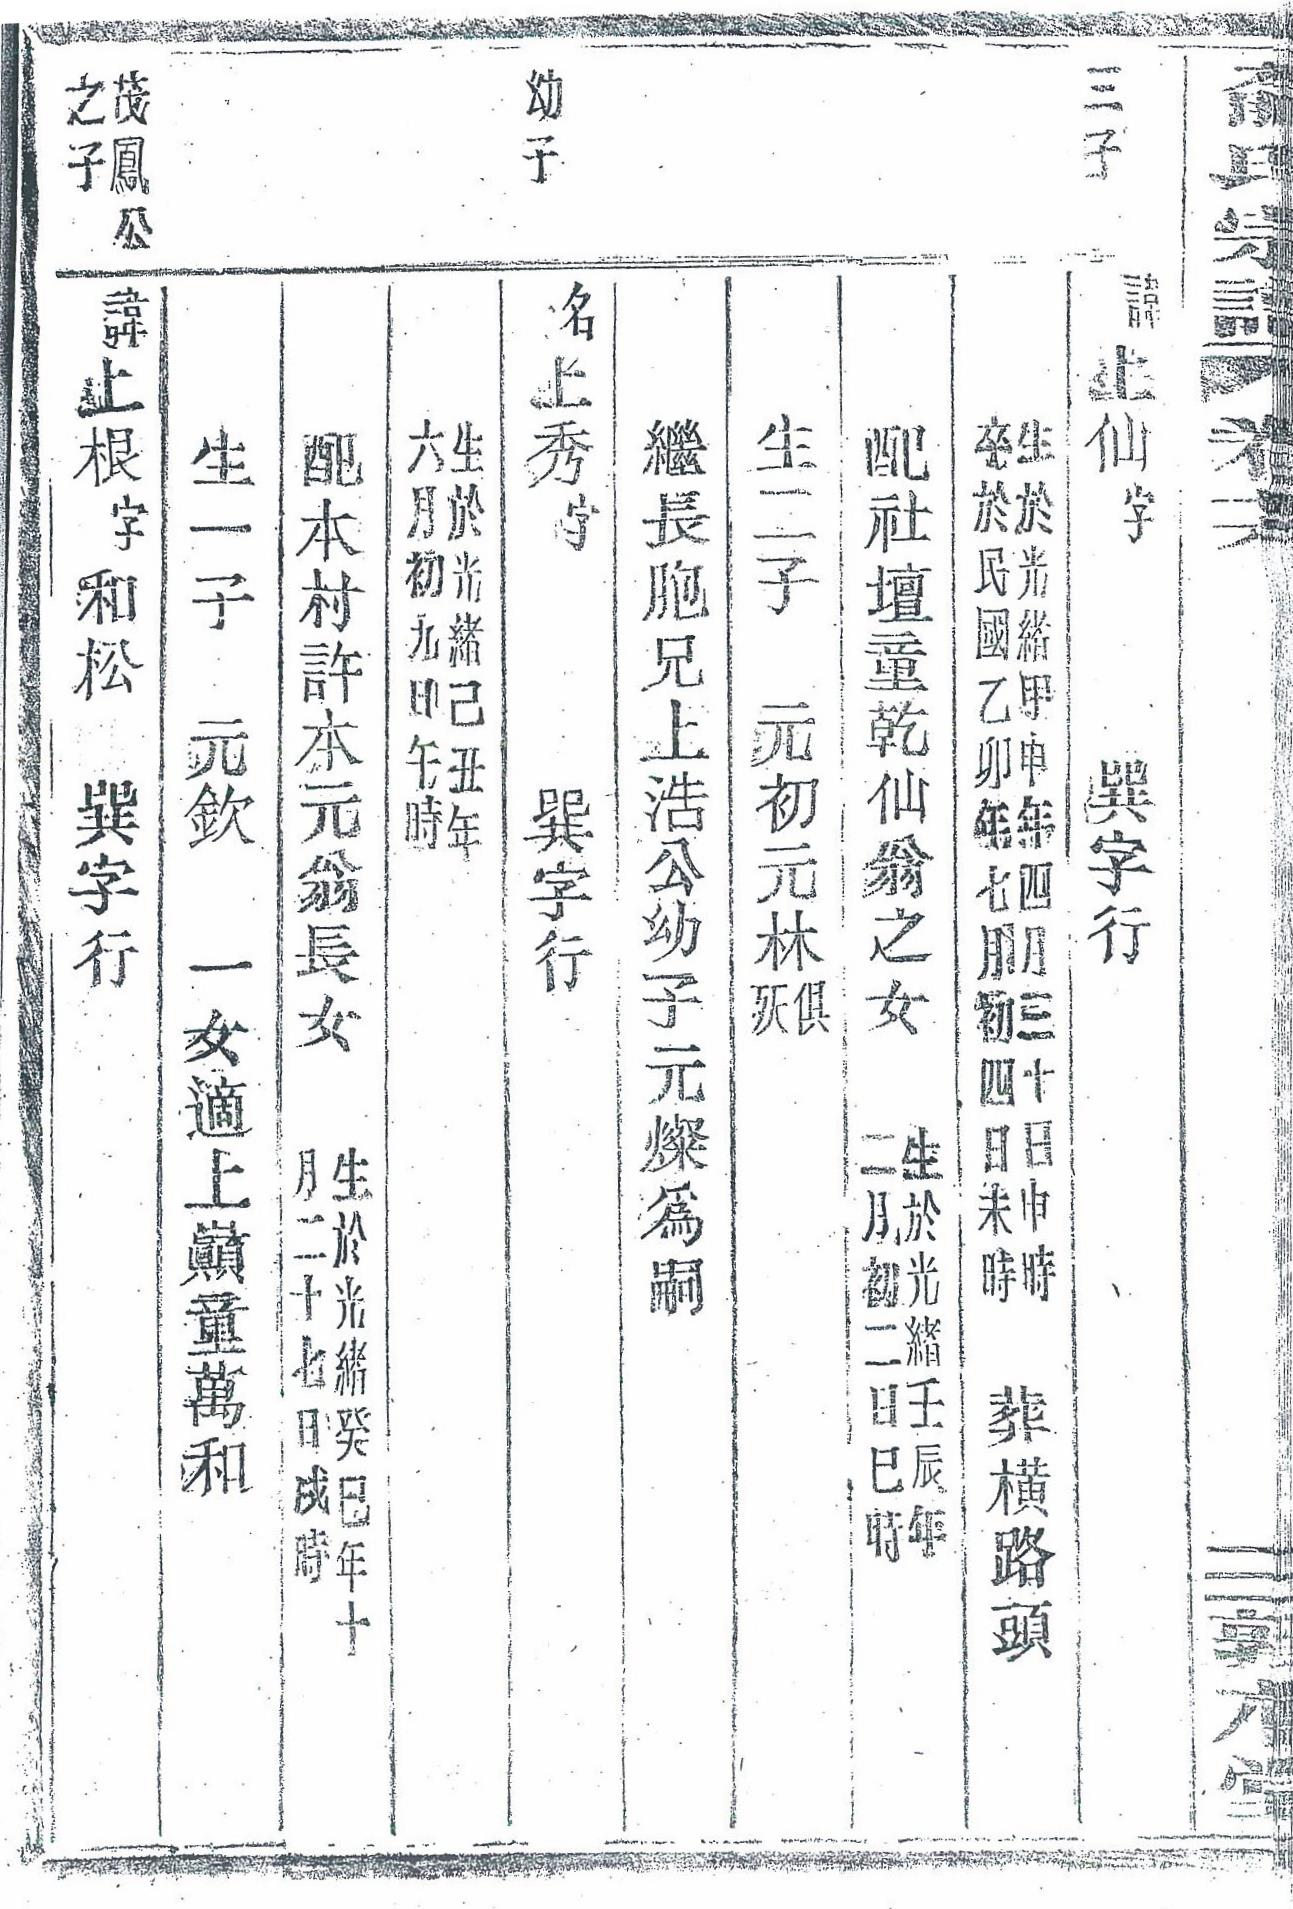 氏宗譜
三子
諱上仙字 巽字行
生於光緒甲申年四月三十日申時
卒於民國乙卯年七月初四日未時
葬橫路頭
配社壇童乾仙翁之女
生於光緒壬辰年
二月初二日巳時
生二子 元初元林俱
殀
繼長胞兄上浩公幼子元燦為嗣
幼子
名上秀字 巽字行
生於光緒己丑年
六月初九日午時
配本村許本元翁長女
生於光緒癸巳年十
月二十七日戌時
生一子 元欽 一女適上巔童萬和
茂鳳公
之子
諱上根字和松 巽字行